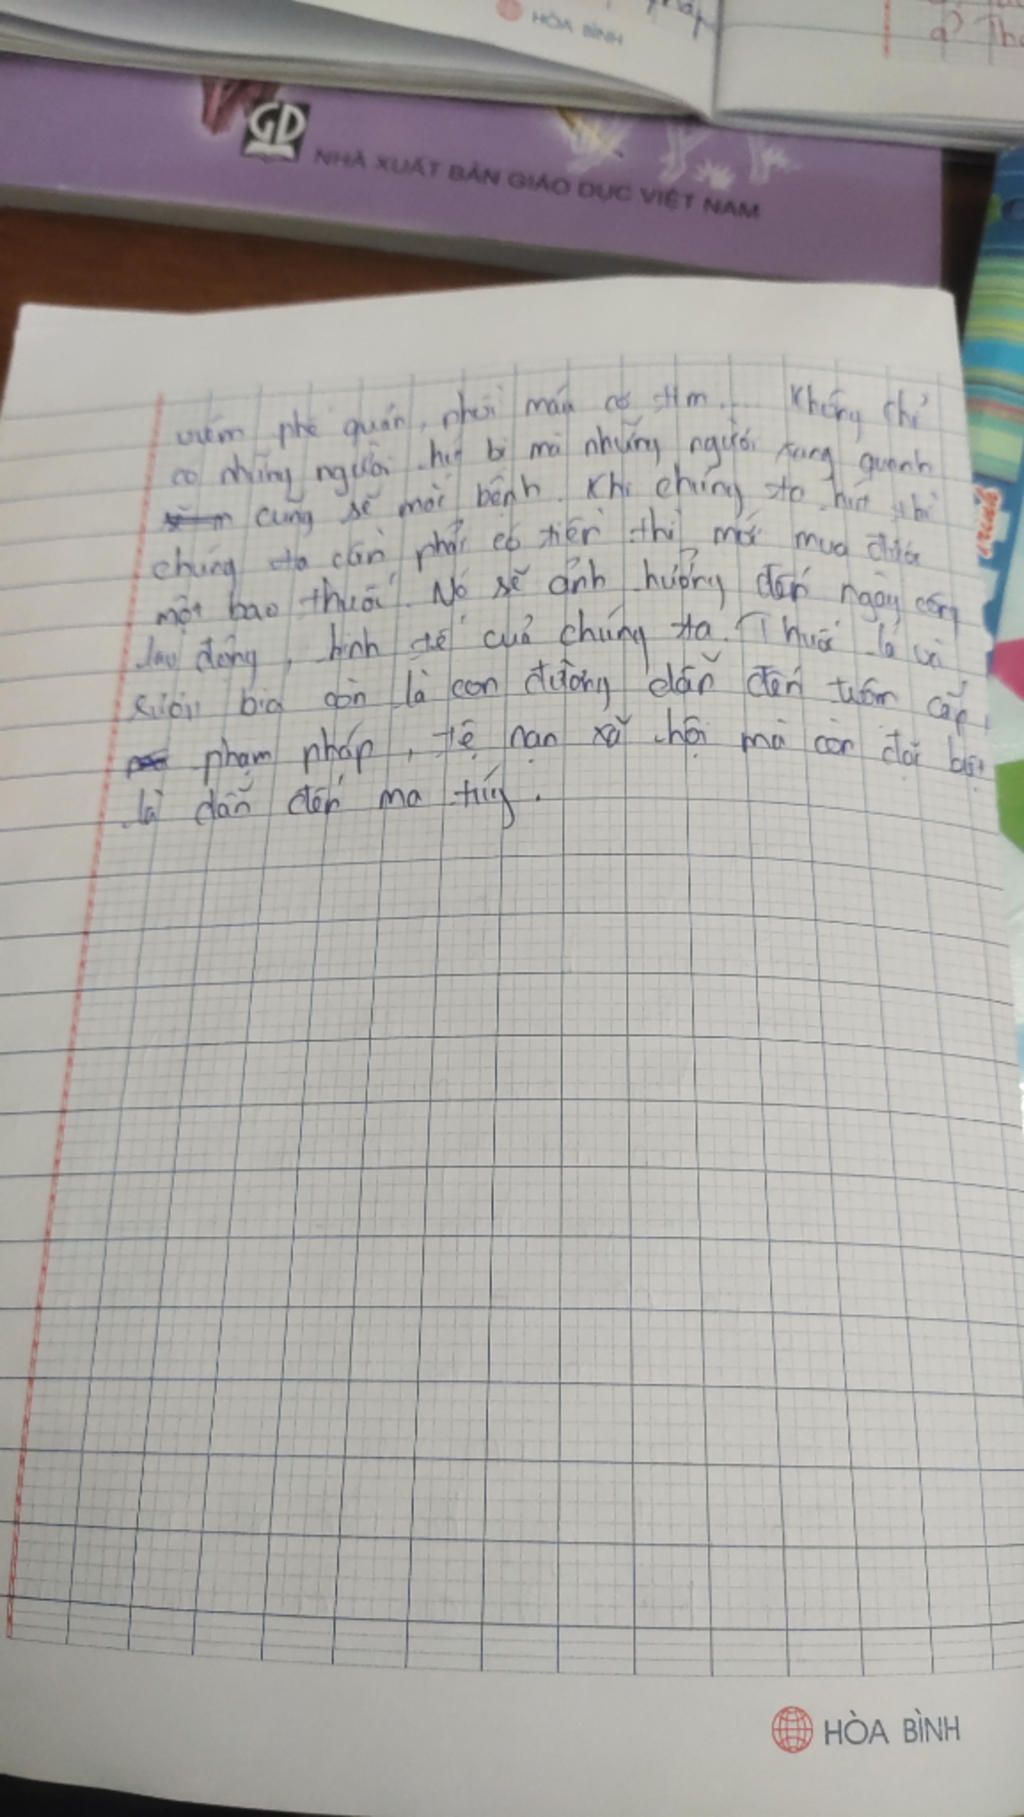 HÒA BÌNH
GD
NHÀ XUẤT BẢN GIÁO DỤC VIỆT NAM
viêm phế quản, nhồi máu cơ tim... Không chỉ
có những người hút bị mà những người xung quanh
cũng sẽ mắc bệnh. Khi chúng ta hút thì
chúng ta cần phải có tiền thì mới mua được
một bao thuốc. Nó sẽ ảnh hưởng đến ngày công
lao động, kinh tế của chúng ta. Thuốc lá và
rượu bia còn là con đường dẫn đến trộm cắp,
phạm pháp, tệ nạn xã hội mà còn đặc biệt
là dẫn đến ma túy.
HÒA BÌNH